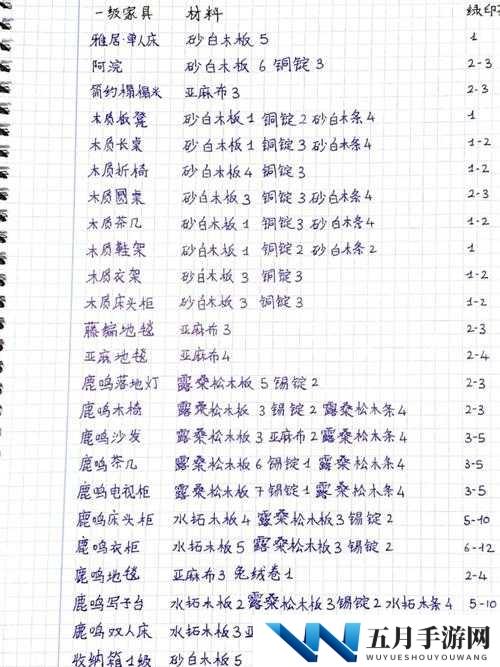 一级家具 材料 绿印
雅居·单人床 砂白木板 5 1
阿浣 砂白木板 6 铜锭 3 2-3
简约榻榻米 亚麻布3 2-3
木质板凳 砂白木板 1 铜锭 2 砂白木条 4 1
木质长桌 砂白木板 1 铜锭 3 砂白木条 4 1-2
木质折椅 砂白木板 4 铜锭 3 1-2
木质圆桌 砂白木板 3 铜锭 3 砂白木条 4 2-3
木质茶几 砂白木板 1 铜锭 3 砂白木条 4 1-2
木质鞋架 砂白木板 1 铜锭 2 砂白木条 2 1
木质衣架 砂白木板 3 铜锭 3 1-2
木质床头柜 砂白木板 3 铜锭 3 1-2
藤编地毯 亚麻布 3 2-3
亚麻地毯 亚麻布 4 2-4
鹿鸣落地灯 露桑松木板 5 锡锭 2 2-3
鹿鸣木椅 露桑松木板 3 锡锭 2 露桑松木条 4 2-3
鹿鸣沙发 露桑松木板 3 亚麻布 2 露桑松木条 4 3-5
鹿鸣茶几 露桑松木板 6 锡锭 1 露桑松木条 4 3-5
鹿鸣电视柜 露桑松木板 7 锡锭 1 露桑松木条 4 3-5
鹿鸣床头柜 水拓木板 4 露桑松木板 3 锡锭 2 5-10
鹿鸣衣柜 水拓木板 5 露桑松木板 3 锡锭 2 6-12
鹿鸣地毯 亚麻布 3 兔绒卷 1 2-4
鹿鸣写字台 水拓木板 2 露桑松木板 3 锡锭 2 水拓木条 4 5-10
鹿鸣双人床 水拓木板 3 亚
收纳箱 1级 砂白木板 5
五月手游网
WUYUESHOUYOUWANG